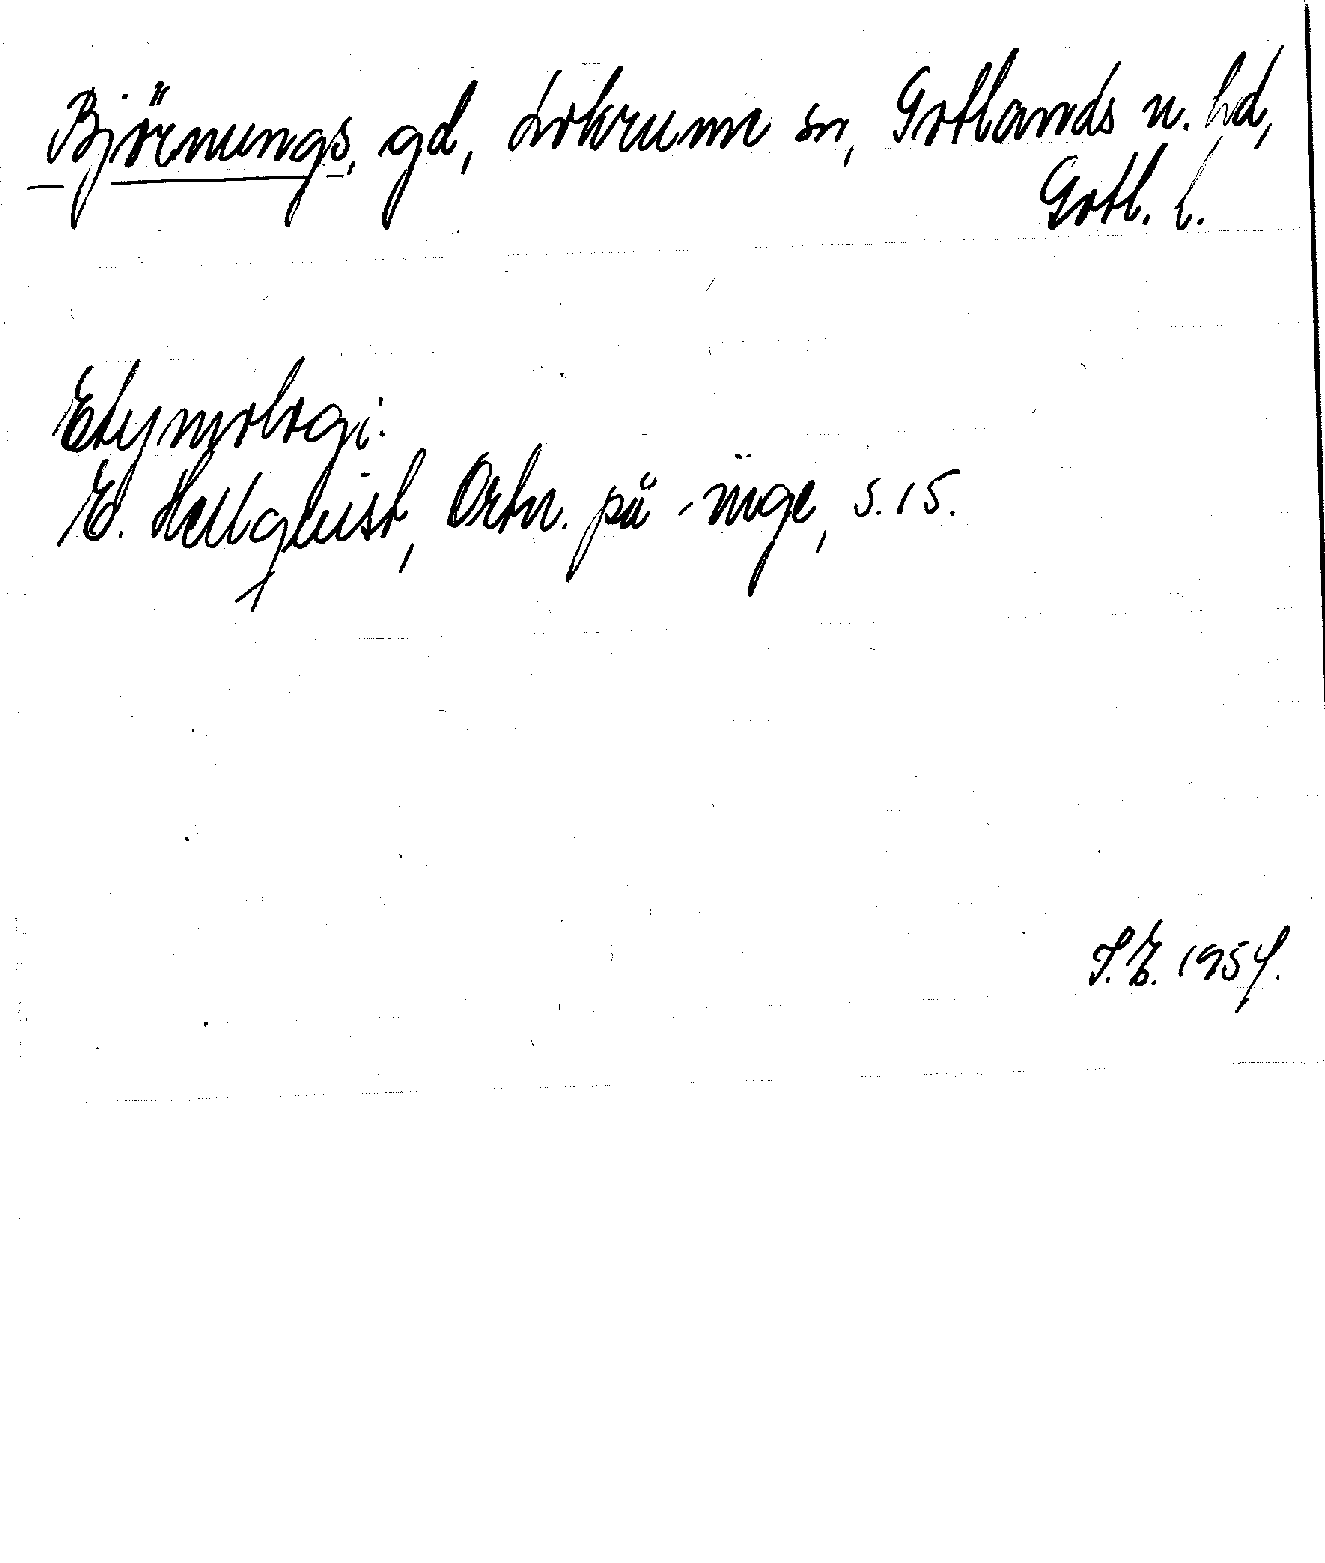 Björnungs, gd, Lokrume sn, Gotlands n. hd,
Gotl. l.
Etymologi:
E. Hellquist, Ortn. på -inge, s. 15.
S.E. 1954.